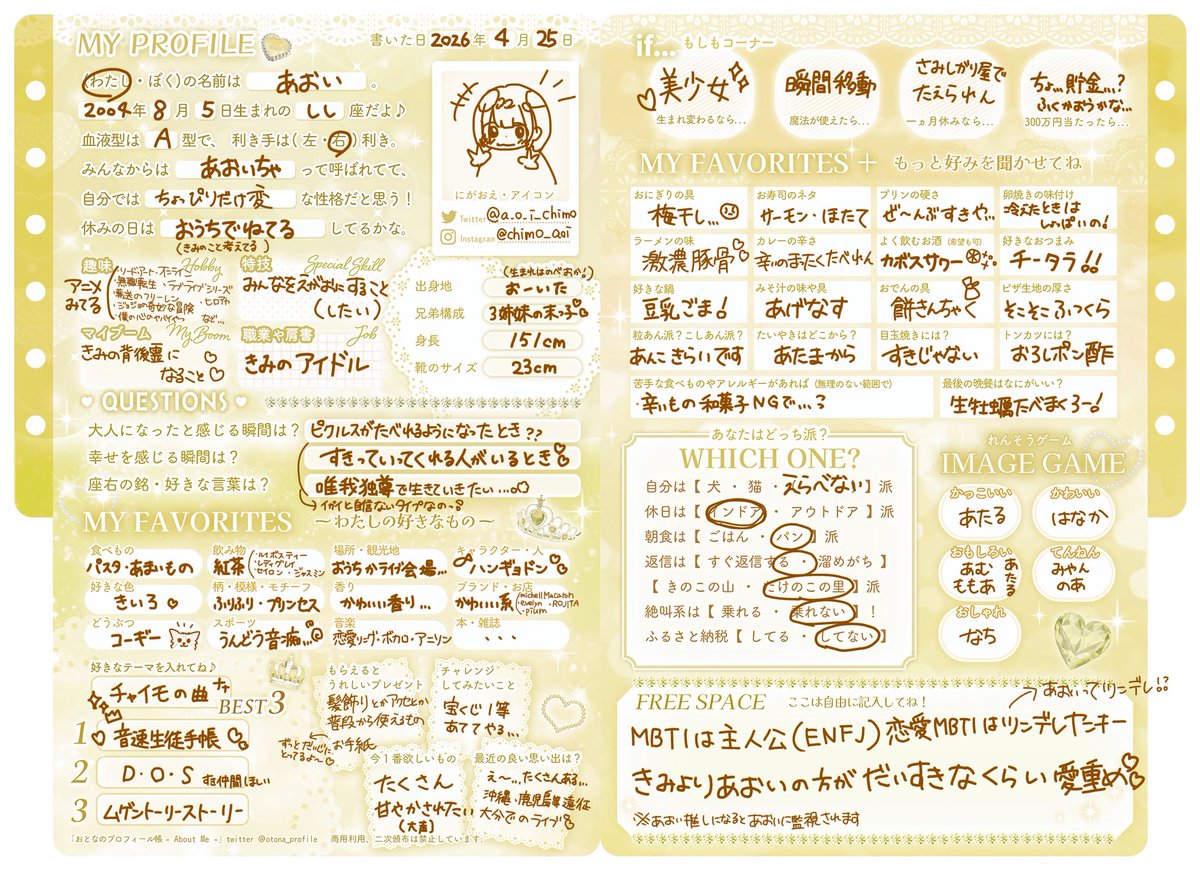 MY PROFILE
書いた日 2026年 4月 25日
(わたし・ぼく)の名前は あおい 。
2004年 8月 5日生まれの しし 座だよ♪
血液型は A 型で、利き手は(左・右)利き。
みんなからは あおいちゃ って呼ばれてて、
自分では ちょっぴりだけ変 な性格だと思う!
休みの日は おうちでねてる してるかな。
(きみのこと考えてる)
にがおえ・アイコン
Twitter @a.o.i_chimo
Instagram @chimo_aoi
趣味 Hobby
アニメみてる
・ソードアート・オンライン
・無職転生 ・ラブライブシリーズ
・葬送のフリーレン ・ヒロアカ
・ジョジョの奇妙な冒険
・僕の心のヤバイやつ など…
特技 Special Skill
みんなをえがおにすること
(したい)
マイブーム My Boom
きみの背後霊に
なること♡
職業や肩書 Job
きみのアイドル
(生まれはのべおか!)
出身地 おーいた
兄弟構成 3姉妹の末っ子♡
身長 151cm
靴のサイズ 23cm
QUESTIONS
大人になったと感じる瞬間は? ピクルスがたべれるようになったとき??
幸せを感じる瞬間は? すきっていってくれる人がいるとき♡
座右の銘・好きな言葉は? 唯我独尊で生きていきたい…♡
→イガイと自信ないタイプなの…
MY FAVORITES ~わたしの好きなもの~
食べもの パスタ・あまいもの
飲み物 紅茶
場所・観光地 おうちかライブ会場…
キャラクター・人 ハンギョドン
好きな色 きいろ♡
柄・模様・モチーフ ふりふり・プリンセス
香り かわいい香り…
ブランド・お店 かわいい系
・michellMacaron
・evelyn ・ROJITA
・pium
どうぶつ コーギー
スポーツ うんどう音痴…
音楽 恋愛ソング・ボカロ・アニソン
本・雑誌 ・・・
好きなテーマを入れてね♪
チャイモの曲 BEST3
1 音速生徒手帳
2 D・O・S すき仲間ほしい
3 ムゲントーリーストーリー
もらえると
うれしいプレゼント
髪飾りとかアクセとか
普段から使えるもの
お手紙
ずっとだいじに
とってるよ~♡
チャレンジ
してみたいこと
宝くじ1等
あててやる…
今1番欲しいもの
たくさん
甘やかされたい
(大声)
最近の良い思い出は?
え~…たくさんある…
沖縄、鹿児島遠征
大分でのライブ
「おとなのプロフィール帳 - About Me -」twitter @otona_profile 商用利用、二次頒布は禁止しています。
if... もしもコーナー
美少女
生まれ変わるなら…
瞬間移動
魔法が使えたら…
さみしがり屋で
たえられん
一ヵ月休みなら…
ちょ…貯金…?
ふくかおうかな…
300万円当たったら…
MY FAVORITES + もっと好みを聞かせてね
おにぎりの具 梅干し…
お寿司のネタ サーモン・ほたて
プリンの硬さ ぜ~んぶすきや…
卵焼きの味付け 冷えたときはしょっぱいの!
ラーメンの味 激濃豚骨♡
カレーの辛さ 辛いのまたくたべれん
よく飲むお酒 (希望も可) カボスサワー
好きなおつまみ チータラ!!
好きな鍋 豆乳ごま!
みそ汁の味や具 あげなす
おでんの具 餅きんちゃく
ピザ生地の厚さ そこそこふっくら
粒あん派?こしあん派? あんこきらいです
たいやきはどこから? あたまから
目玉焼きには? すきじゃない
トンカツには? おろしポン酢
苦手な食べものやアレルギーがあれば (無理のない範囲で)
・辛いもの 和菓子NGで…?
最後の晩餐はなにがいい?
生牡蠣たべまくろー!
あなたはどっち派?
WHICH ONE?
自分は【 犬 ・ 猫 ・えらべない】派
休日は【 インドア ・ アウトドア 】派
朝食は【 ごはん ・ パン 】派
返信は【 すぐ返信する ・ 溜めがち 】
【 きのこの山 ・ たけのこの里 】派
絶叫系は【 乗れる ・ 乗れない 】!
ふるさと納税【 してる ・ してない 】
れんそうゲーム
IMAGE GAME
かっこいい あたる
かわいい はなか
おもしろい あむ ももあ あたる
てんねん みやん のあ
おしゃれ なち
FREE SPACE ここは自由に記入してね!
→あおいってツンデレ!?
MBTIは主人公(ENFJ) 恋愛MBTIはツンデレヤンキー
きみよりあおいの方が だいすきなくらい 愛重め♡
※あおい推しになるとあおいに監視されます